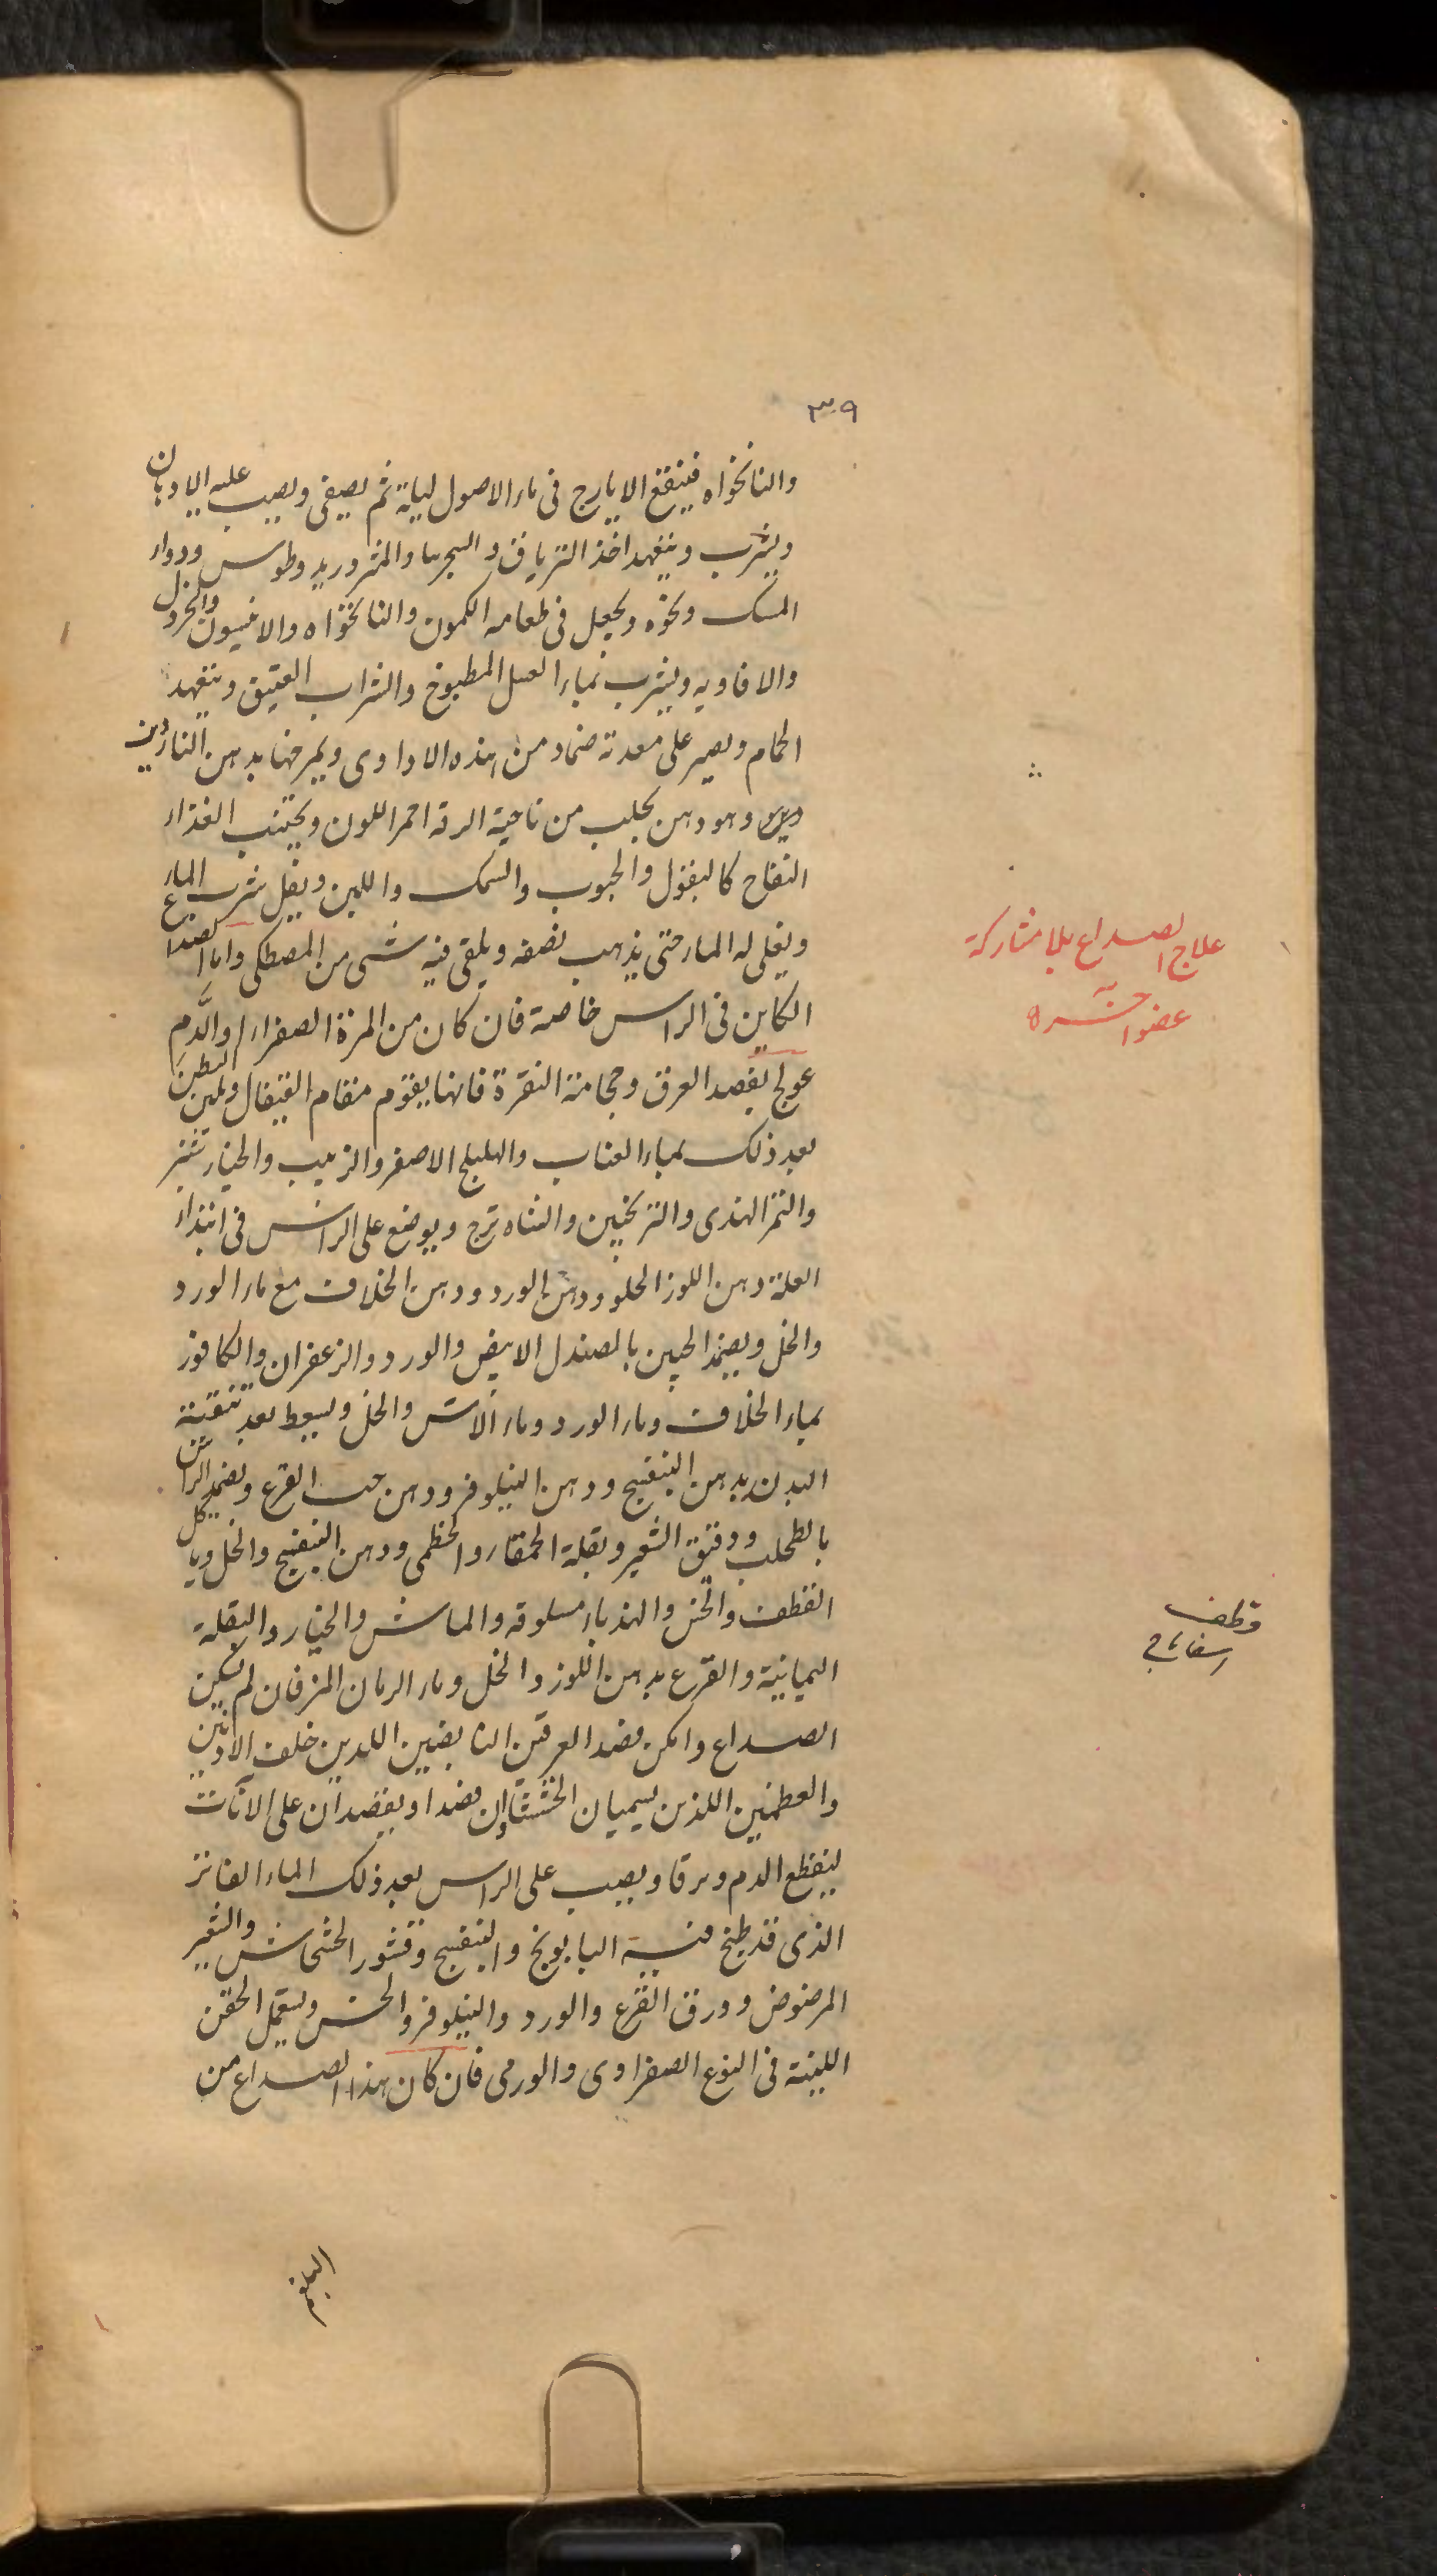 ٣٩
والنانخواه فينقع الايارج فى ماء الاصول ليلة ثم يصفى ويصب عليه الادهان
ويشرب ويتعهد اخذ الترياق و السجرينا والمثروديطوس ودواء
المسك ونحوه ويجعل فى طعامه الكمون والنانخواه والانيسون والخردل
والافاويه ويشرب بماء العسل المطبوخ والشراب العتيق ويتعهد
الحمام ويصير على معدته ضماد من هذه الاداوى ويمرخها بدهن الناردين
وهو دهن يجلب من ناحية الرقة احمر اللون ويجتنب الغذاء
النفاخ كالبقول والحبوب والسمك واللبن ويقل شرب الماء
ويغلى له الماء حتى يذهب نصفه ويلقى فيه شى من المصطكى واما الصداع
الكاين فى الراس خاصة فان كان من المرة الصفراء والدم
عولج بفصد العرق وحجامة النقرة فانها يقوم مقام القيفال ويلين البطن
بعد ذلك بماء العناب والهليلج الاصفر والزبيب والخيار شنبر
والتمر الهندى والترنجبين والشاه ترج ويوضع على الراس فى ابتداء
العلة دهن اللوز الحلو ودهن الورد ودهن الخلاف مع ماء الورد
والخل ويضمد الجبين بالصندل الابيض والورد والزعفران والكافور
بماء الخلاف وماء الورد وماء الاس والخل ويسعط بعد تنقية
البدن بدهن البنفسج ودهن النيلوفر ودهن حب القرع ويضمد الراس
بالطحلب ودقيق الشعير وبقلة الحمقاء والخطمى ودهن البنفسج والخل وياكل
القطف والخس والهندباء مسلوقه والماش والخيار والبقلة
اليمانية والقرع بدهن اللوز والخل وماء الرمان المز فان لم يسكن
الصداع وامكن فصد العرقين النابضين اللدين خلف الاذنين
والعظمين اللذين يسميان الخششاإن فصدا ويفصدان على الاتات
لينقطع الدم ويرقا ويصب على الراس بعد ذلك الماء الفاتر
الذى قد طبخ فيه البابونج والبنفسج وقشور الخشخاش والشعير
المرضوض وورق القرع والورد والنيلوفر والخس ويستعمل الحقن
اللينة فى النوع الصفراوى والورمى فان كان هذا الصداع من
البلغم
علاج الصداع بلا مشاركة
عضوا خره
قطف
اسفاناج